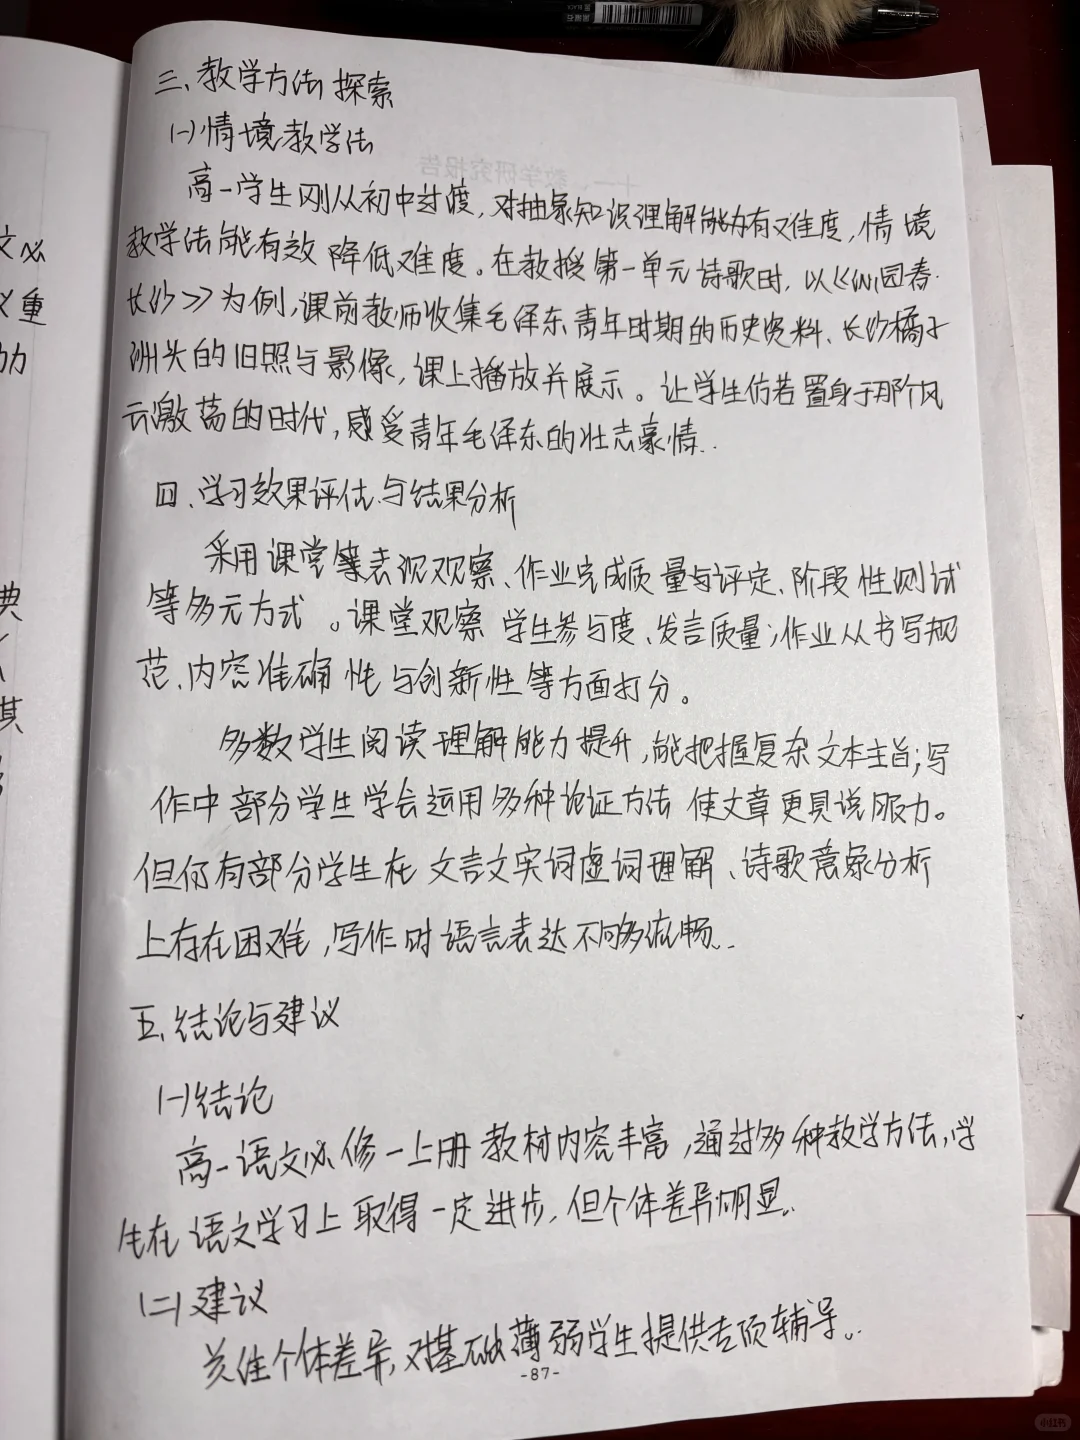 三、教学方法探索
(一)情境教学法
高一学生刚从初中过渡,对抽象知识理解能力有难度,情境
教学法能有效降低难度。在教授第一单元诗歌时,以《沁园春·
长沙》为例,课前教师收集毛泽东青年时期的历史资料、长沙橘子
洲头的旧照与影像,课上播放并展示。让学生仿若置身于那个风
云激荡的时代,感受青年毛泽东的壮志豪情..
四、学习效果评估与结果分析
采用课堂等表现观察、作业完成质量与评定、阶段性测试
等多元方式。课堂观察学生参与度、发言质量;作业从书写规
范、内容准确性与创新性等方面打分。
多数学生阅读理解能力提升,能把握复杂文本主旨;写
作中部分学生学会运用多种论证方法使文章更具说服力。
但仍有部分学生在文言文实词虚词理解、诗歌意象分析
上存在困难,写作时语言表达不够流畅..
五、结论与建议
(一)结论
高一语文必修一上册教材内容丰富,通过多种教学方法,学
生在语文学习上取得一定进步,但个体差异明显..
(二)建议
关注个体差异,对基础薄弱学生提供专项辅导..
-87-
十一、教学研究报告
文必
义重
力
典
其
小红书